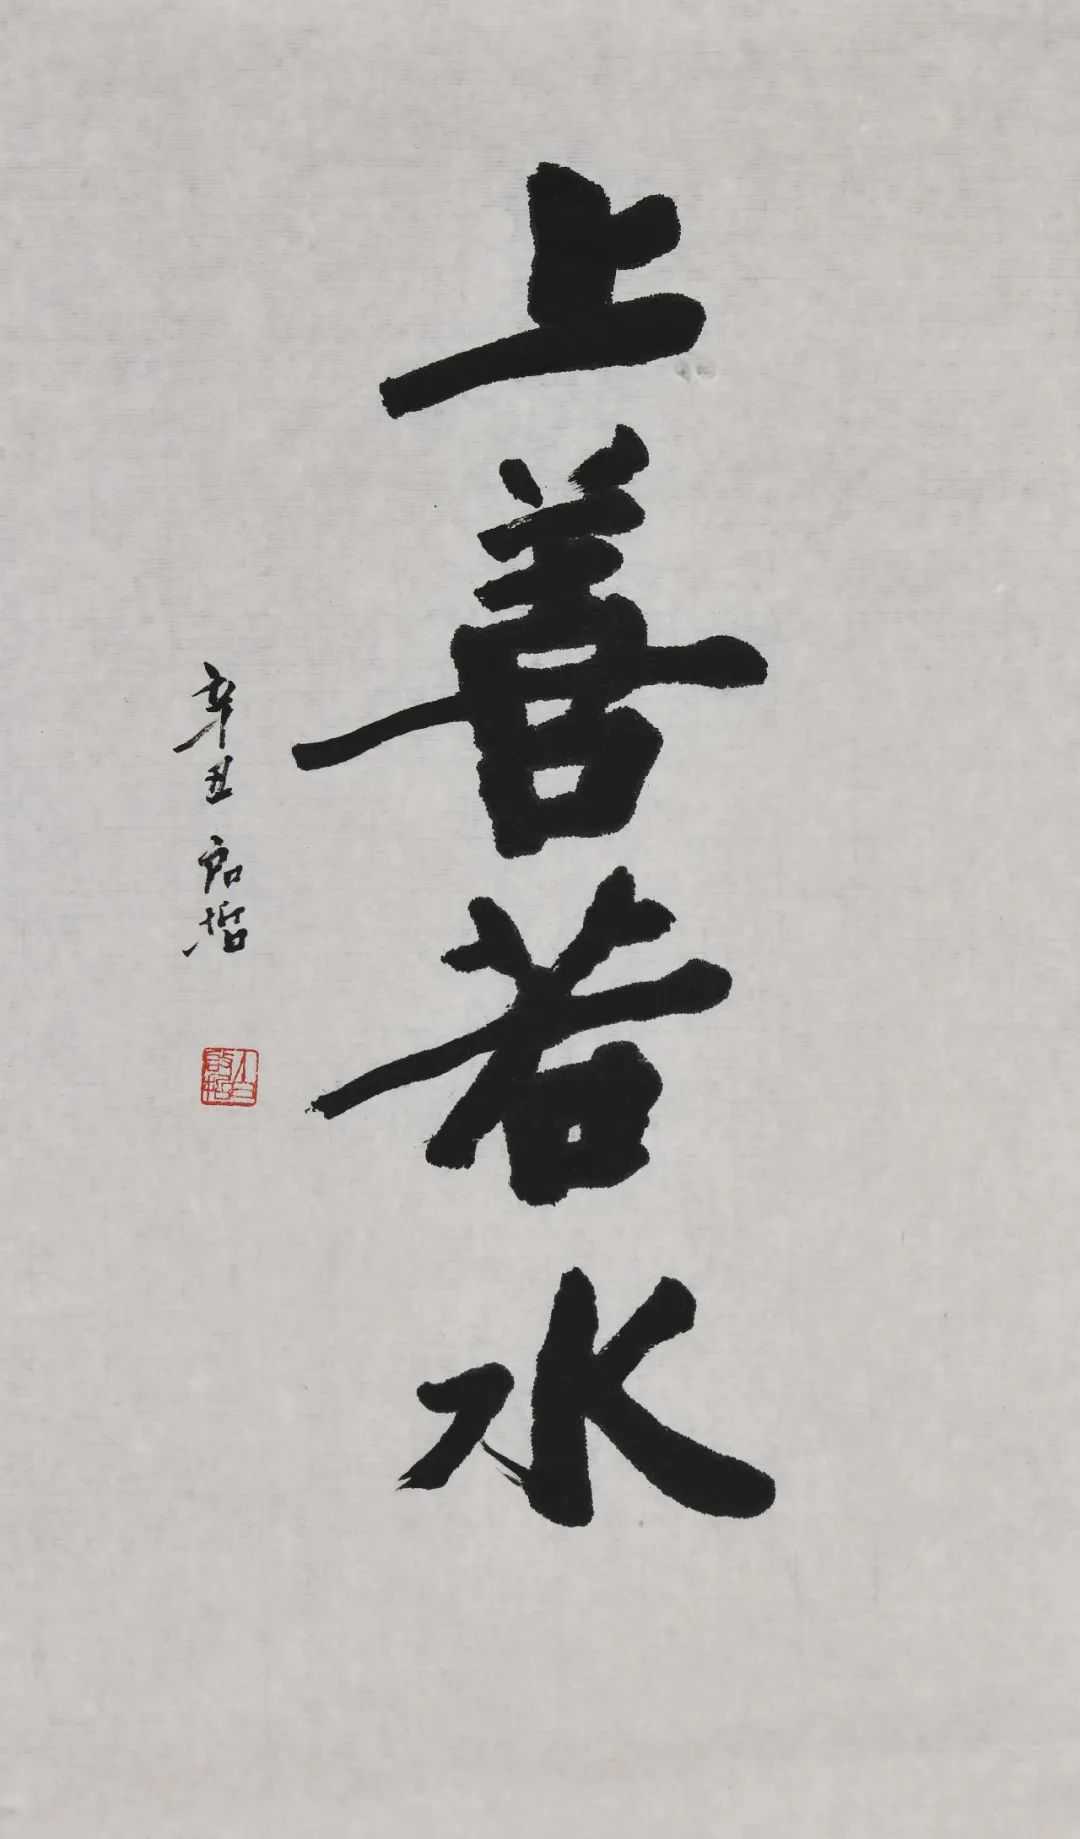 上善若水
辛丑 启哲